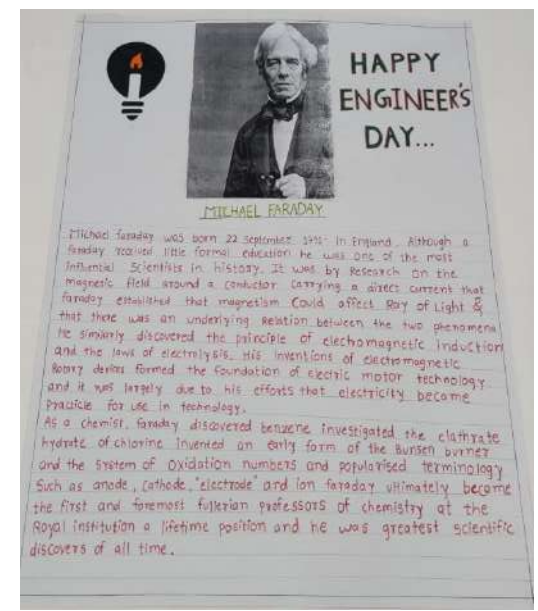 HAPPY
ENGINEER'S
DAY...
MICHAEL FARADAY
Michael faraday was born 22 september in England. Although a
faraday received little formal education he was one of the most
influential Scientists in history. It was by Research on the
magnetic field around a conductor carrying a direct current that
faraday established that magnetism Could affect Ray of Light &
that there was an underlying Relation between the two phenomena
He similarly discovered the principle of electromagnetic Induction
and the laws of electrolysis. His inventions of electromagnetic
Rotary formed the foundation of electric motor technology
and it was largely due to his efforts that electricity become
for use in technology.
As a chemist, faraday discovered benzene investigated the clathrate
hydrate of chlorine invented an early form of the Bunsen burner
and the System of Oxidation numbers and popularised terminology
Such as anode, cathode, "electrode" and ion faraday ultimately became
the first and foremost fullerian professors of chemistry at the
Royal institution a lifetime position and he was greatest scientific
discovers of all time.